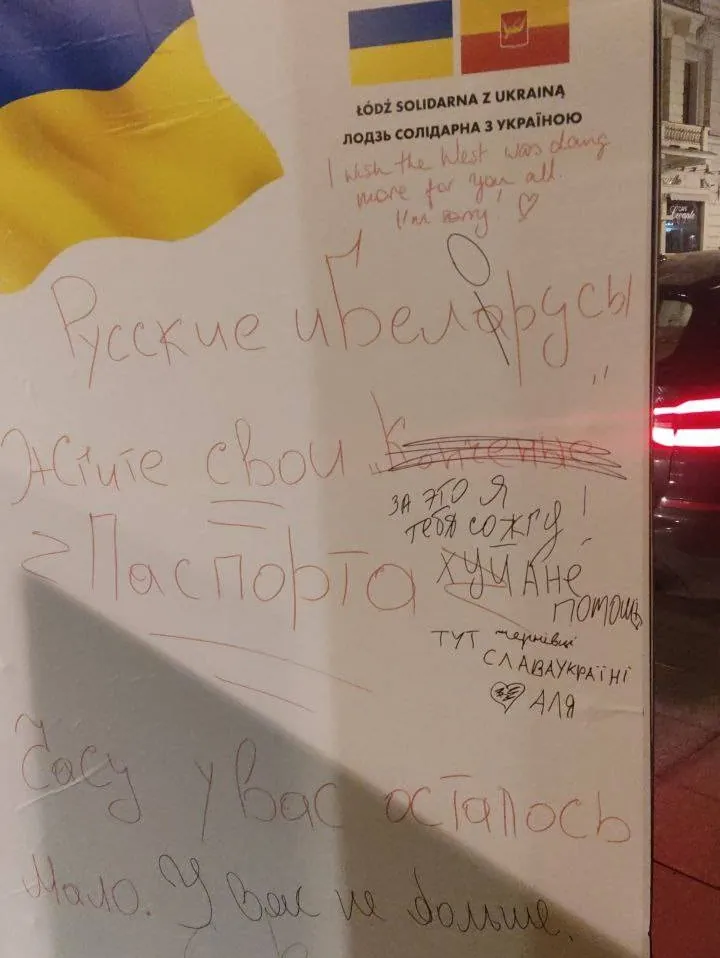 ŁÓDŹ SOLIDARNA Z UKRAINĄ
ЛОДЗЬ СОЛІДАРНА З УКРАЇНОЮ
I wish the West was doing
more for you all.
I'm sorry!
Русские и белорусы
Жгите свои
за это я
тебя сожгу!
Паспорта
хуй а не
помощь
тут чернівці
Слава Україні
Аля
Часу у вас осталось
мало. У вас не больше.